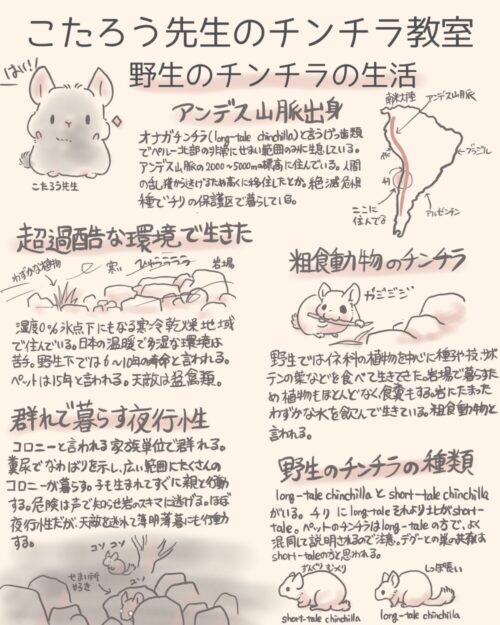 こたろう先生のチンチラ教室
野生のチンチラの生活
はい!
こたろう先生
アンデス山脈出身
オナガチンチラ(long-tale chinchilla)と言うげっ歯類
でペルー北部の非常にせまい範囲のみに生息している。
アンデス山脈の2000〜5000m標高に住んでいる。人間
の乱獲から逃げるため高くに移住したとか。絶滅危惧
種でチリの保護区で暮らしている。
南米大陸
アンデス山脈
ブラジル
チリ
アルゼンチン
ここに
住んでる
超過酷な環境で生きた
わずかな植物
寒い
ひゅうううう
岩場
湿度0%氷点下にもなる寒冷乾燥地域
で住んでいる。日本の温暖で多湿な環境は
苦手。野生下では6〜10年の寿命と言われる。
ペットは15年と言われる。天敵は猛禽類。
粗食動物のチンチラ
ガジガジ
野生ではイネ科の植物を中心に種や枝、サボ
テンの葉などを食べて生きてきた。岩場で暮らすた
め植物もほとんどなく食糞もする。岩にたまった
わずかな水を飲んで生きている。粗食動物と
言われる。
群れで暮らす夜行性
コロニーと言われる家族単位で群れる。
糞尿でなわばりを示し、広い範囲にたくさんの
コロニーが暮らす。子も生まれてすぐに親と行動
する。危険は声で知らせ岩のスキマに逃げる。ほぼ
夜行性だが、天敵を逃れて薄明薄暮にも行動
する。
コソ
コソ
せまい所
好き
コソ
野生のチンチラの種類
long-tale chinchillaとshort-tale chinchilla
がいる。チリにlong-taleそれより北がshort-
tale。ペットのチンチラはlong-taleの方で、よく
混同して説明されるので注意。デグーとの巣の共有は
short-taleの方と思われる。
ずんぐりむっくり
しっぽ長い
short-tale chinchilla
long-tale chinchilla